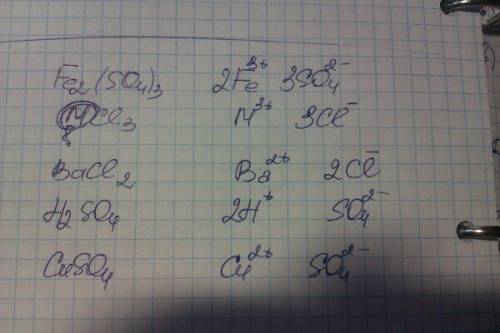 Fe₂(SO₄)₃ 2Fe³⁺ 3SO₄²⁻
MCl₃ M³⁺ 3Cl⁻
BaCl₂ Ba²⁺ 2Cl⁻
H₂SO₄ 2H⁺ SO₄²⁻
CuSO₄ Cu²⁺ SO₄²⁻